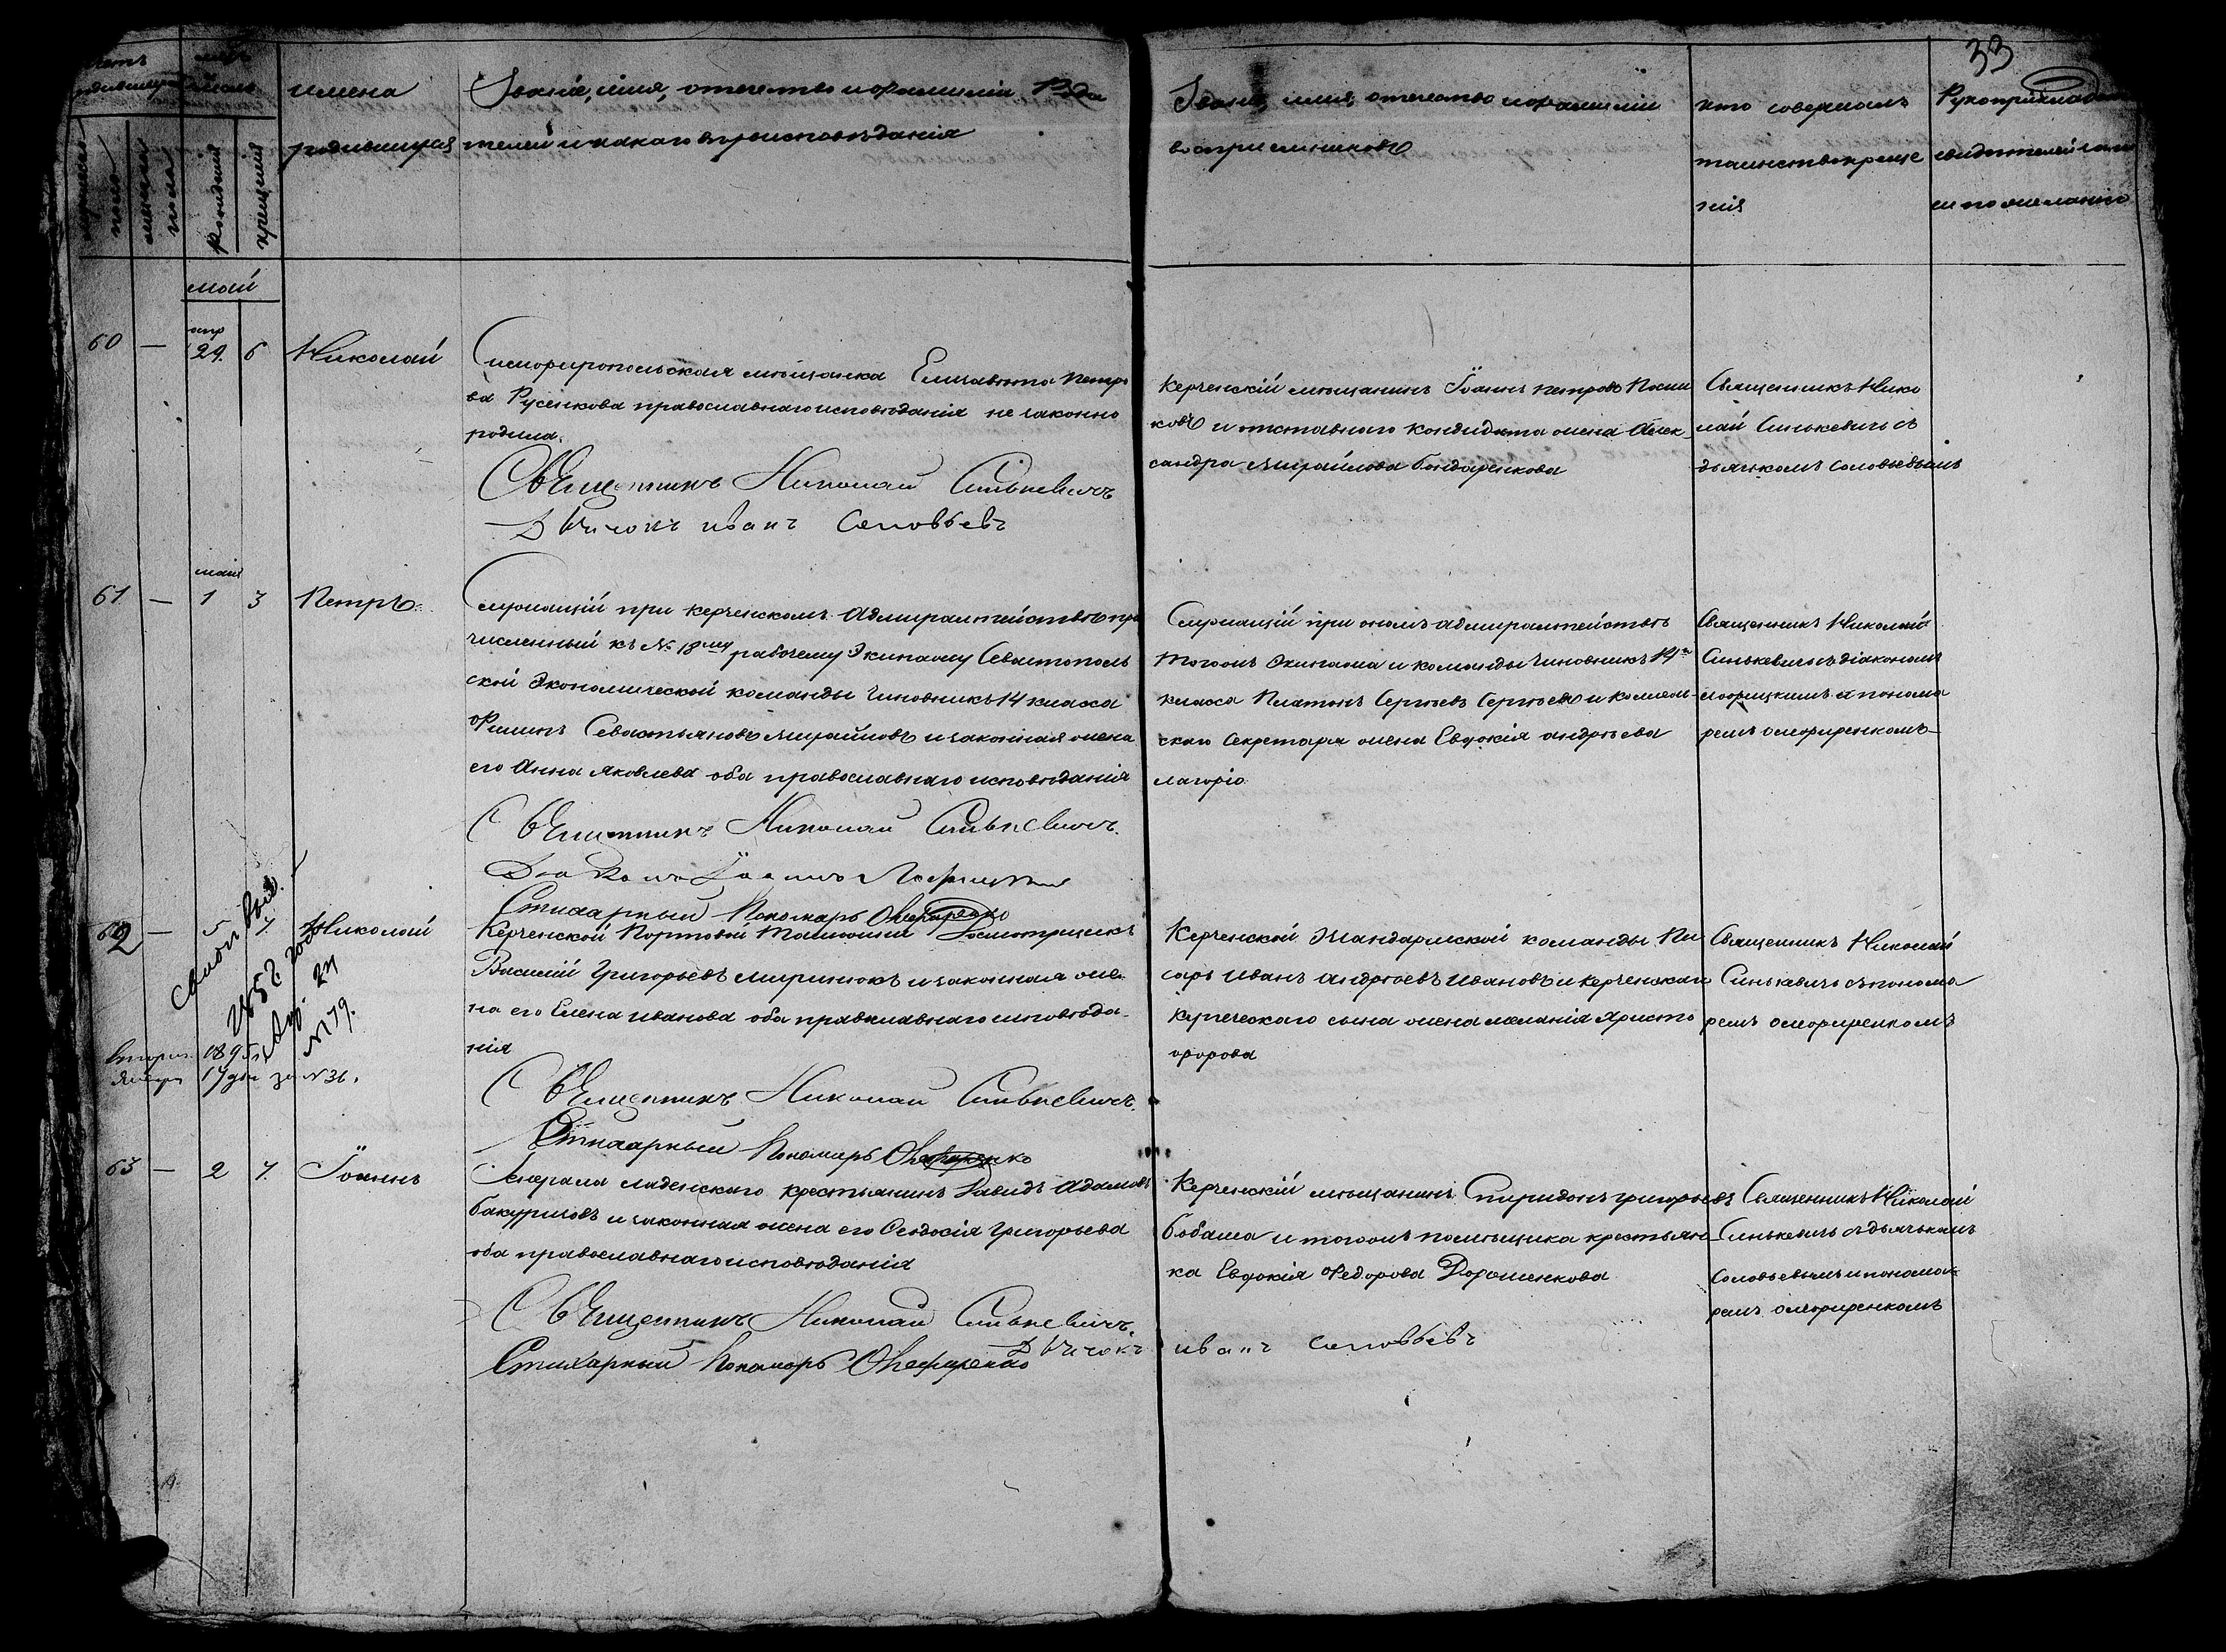 33
имена
родившихся
Званіе, имя, отечество и фамилія Роди
телей и какаго вѣроисповѣданія
Званіе, имя, отечество и фамиліи
воспріемниковъ
кто совершалъ
таинство креще
нія
Рукоприклад
свидѣтелей
по желанію
мужеска
пола
женска
пола
рожденія
крещенія
май
60 — апр 29. 6 Николай
Симферопольская мѣщанка Елисавета Петро
ва Русенкова православнаго исповѣданія не законно
родила.
Священникъ Николай Синькевичъ
Дьячокъ иванъ Соловьевъ
Керченскій мѣщанинъ Іоаннъ Петровъ
ковъ и отставнаго кондидата жена Алек-
сандра Михайлова Бондаренкова
Священникъ Нико
лай Синькевичъ съ
дьячкомъ Соловьевымъ
61 — мая 1 3 Петръ
Служащій при Керченскомъ Адмиралтействѣ при
численный къ № 18му рабочему Экипажу Севастополь
ской Экономической команды Чиновникъ 14 класса
Филипъ Севастьяновъ Михайловъ и законная жена
его Анна Яковлева оба православнаго исповѣданія
Священникъ Николай Синькевичъ.
Діаконъ Іоаннъ
Стихарный Пономарь Онефиренко
Служащій при ономъ адмиралтействѣ
тогожъ Экипажа и команды Чиновникъ 14го
класса Платонъ Сергѣевъ Сергѣевъ и Коллеж-
скаго Секретаря жена Евдокія андрѣева
лагоріо
Священникъ Николай
Синькевичъ съ діакономъ
и понома
ремъ онефиренкомъ
62 — 5 7. Николай
Керченской Портовой Таможни Досмотрщикъ
Василій Григорьевъ Миринюкъ и законная же-
на его Елена иванова оба православнаго исповѣда-
нія
Священникъ Николай Синькевичъ.
Стихарный Пономарь Онефиренко
Керченской Жандармской команды Пи
сарь Иванъ андрѣевъ Ивановъ и керченскаго
купеческаго сына жена меланія Христо
форова
Священникъ Николай
Синькевичъ съ понома
ремъ онефиренкомъ
1852 года
Авг. 24
№ 79.
Втори. 1895
Января 17 дня за № 36.
63 — 2 7. Іоаннъ
Генерала ладенскаго крестьянинъ Давидъ Адамовъ
бакуриновъ и законная жена его Ѳеодосія Григорьева
оба православнаго исповѣданія
Священникъ Николай Синькевичъ.
Дьячокъ иванъ Соловьевъ
Стихарный Пономарь Онефиренко
Керченскій мѣщанинъ Спиридонъ григорьевъ
бобаша и тогожъ помѣщика крестьян-
ка Евдокія Федорова Дорошенкова
Священникъ Николай
Синькевичъ съ дьячькомъ
Соловьевымъ и понома-
ремъ онефиренкомъ